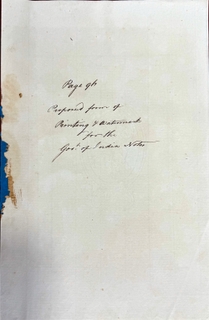 Page 96
Proposed form of
Printing & Watermark
for the
Govt. of India Notes